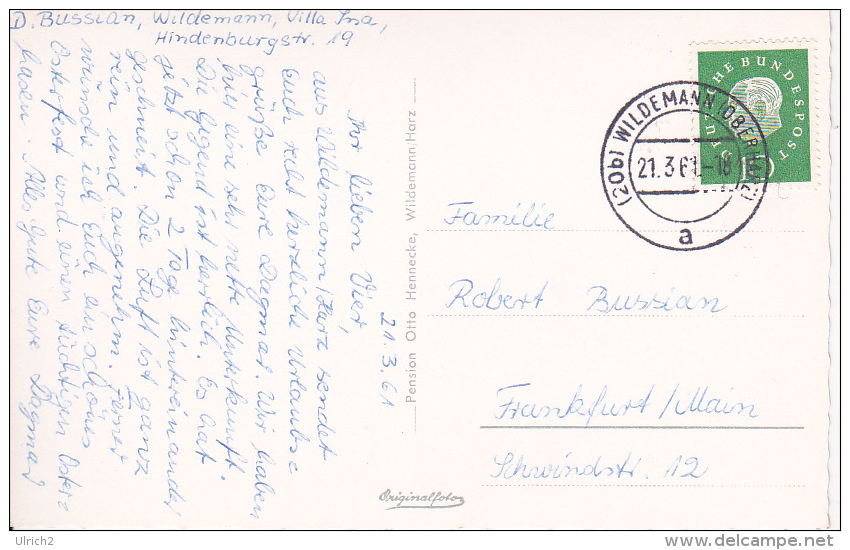 D. Bussian, Wildemann, Villa Ina,
Hindenburgstr. 19
21.3.61
Ihr lieben Vier,
aus Wildemann/Harz sendet
Euch recht herzliche Urlaubs=
grüße Eure Dagmar. Wir haben
hier eine sehr nette Unterkunft.
Die Gegend ist herrlich. Es hat
jetzt schon 2 Tage hintereinander
geschneit. Die Luft ist ganz
rein und angenehm. Ferner
wünsche ich Euch ein schönes
Osterfest und einen tüchtigen Oster=
hasen. Alles Gute Eure Dagmar
Pension Otto Hennecke, Wildemann/Harz
Originalfoto
DEUTSCHE BUNDESPOST
(20b) WILDEMANN (OBERHARZ)
21.3.61-18
a
Familie
Robert Bussian
Frankfurt/Main
Schwindstr. 12
Ulrich2
delcampe.net